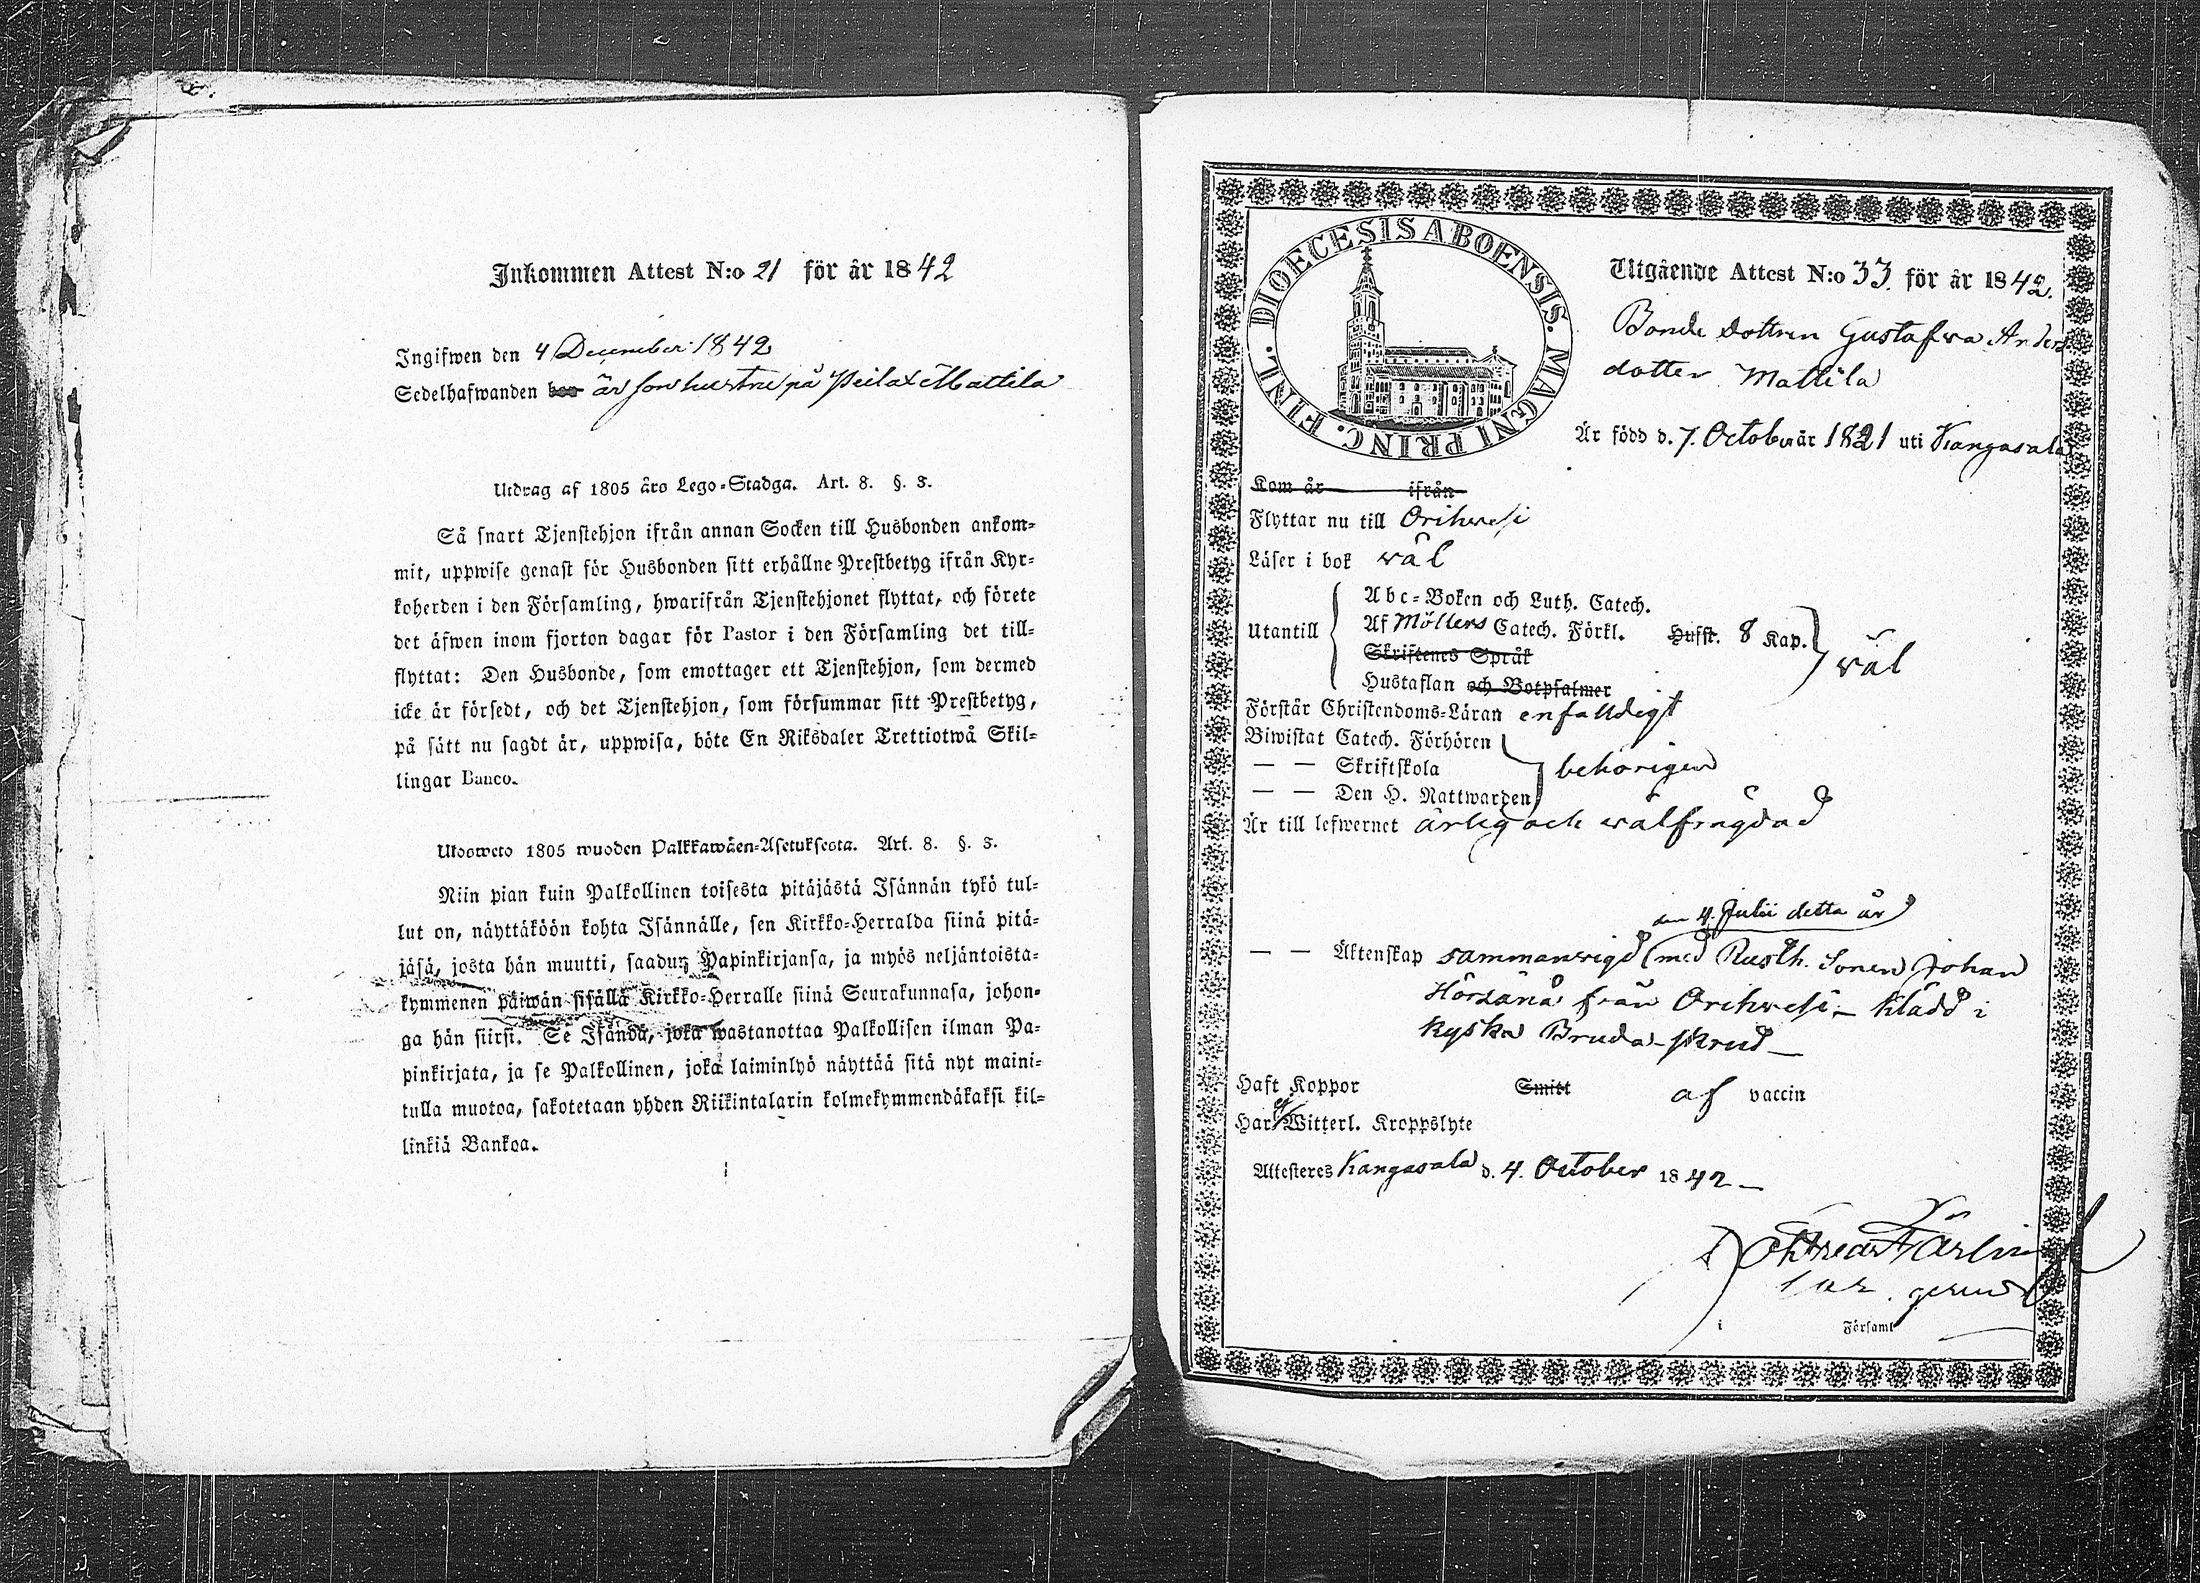 Inkommen Attest N:o 21 för år 1842
Ingifwen den 4 December 1842
Sedelhafwanden hos är sonhustru på Mattila
Utdrag af 1805 års Lego-Stadga. Art. 8. §. 3.
Så snart Tjenstehjon ifrån annan Socken till Husbonden ankom-
mit, uppwise genast för Husbonden sitt erhållne Prestbetyg ifrån Kyr-
koherden i den Församling, hwarifrån Tjenstehjonet flyttat, och förete
det äfwen inom fjorton dagar för Pastor i den Församling det till-
flyttat: Den Husbonde, som emottager ett Tjenstehjon, som dermed
icke är försedt, och det Tjenstehjon, som försummar sitt Prestbetyg,
på sätt nu sagdt är, uppwisa, böte En Riksdaler Trettiotwå Skil-
lingar Banco.
Ulosweto 1805 wuoden Palkkawäen-Asetuksesta. Art. 8. §. 3.
Niin pian kuin Palkollinen toisesta pitäjästä Isännän tykö tul-
lut on, näyttäköön kohta Isännälle, sen Kirkko-Herralda siinä pitä-
jäsä, josta hän muutti, saadun Papinkirjansa, ja myös neljäntoista-
kymmenen päiwän sisällä Kirkko-Herralle siinä Seurakunnasa, johon-
ga hän siirsi. Se Isändä, joka wastanottaa Palkollisen ilman Pa-
pinkirjata, ja se Palkollinen, joka laiminlyö näyttää sitä nyt maini-
tulla muotoa, sakotetaan yhden Riikintalarin kolmekymmendäkaksi kil-
linkiä Bankoa.
DIOECESIS ABOENSIS. MAGNI PRINC. FINL.
Utgående Attest N:o 33. för år 1842.
Bonde dottren Gustafva Anders
dotter Mattila
Är född d. 7. October år 1821 uti Kangasala
Kom år ifrån
Flyttar nu till Orihvesi
Läser i bok väl
Utantill
Abc-Boken och Luth. Catech.
Af Möllers Catech. Förkl. Hufst. 8 Kap.
Skriftenes Språk
Hustaflan och Botpsalmer
väl
Förstår Christendoms-Läran enfaldigt
Biwistat Catech. Förhören
— — Skriftskola behörigen
— — Den H. Nattwarden
Är till lefwernet ärlig och välfrägdad
den 4. Julii detta år
— — Äktenskap sammanvigd med Rusth. Sonen Johan
från Orihvesi — klädd i
kyska Bruda-skrud —
Haft Koppor Smitt af vaccin
Har ej Witterl. Kroppslyte
Attesteres Kangasala d. 4. October 1842 —
i Församl